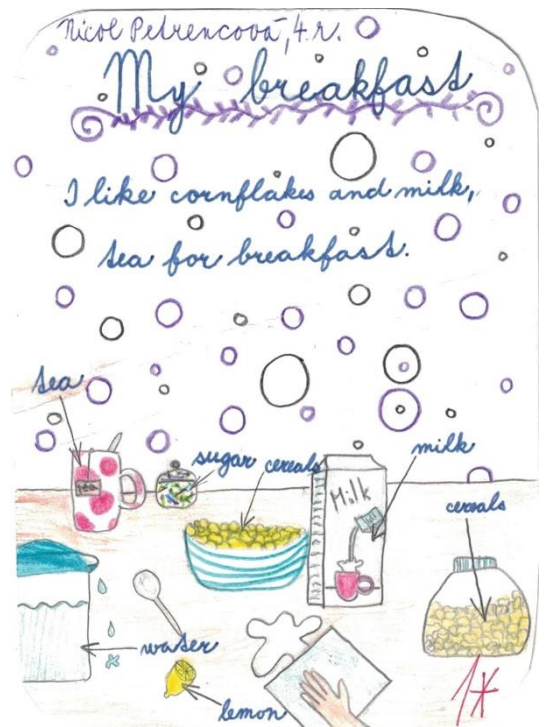 Nicol Petrencová, 4.r.
My breakfast
I like cornflakes and milk,
tea for breakfast.
tea
sugar
cereals
milk
Milk
cereals
tea
water
lemon
1*